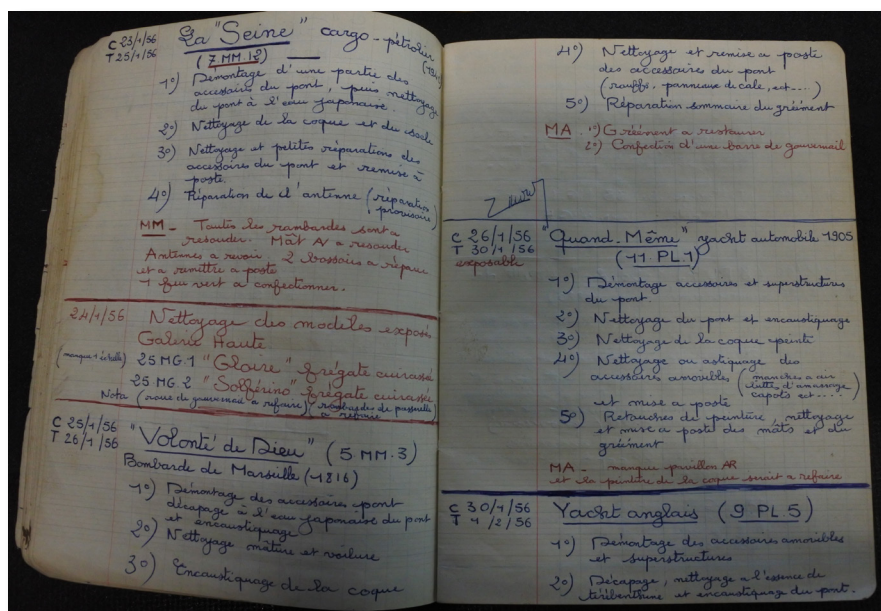 C 23/1/56 La "Seine" cargo-pétrolier
T 25/1/56 (7.MM.12)
1°) Démontage d'une partie des
accessoirs du pont, puis nettoyage
du pont à l'eau japonaise.
2°) Nettoyage de la coque et du socle
3°) Nettoyage et petites réparations des
accessoires du pont et remise à
poste.
4°) Réparation de d'antenne (réparation
provisoire)
MM - Toutes les rambardes sont a
resouder. Mât AV a resouder
Antennes a revoir. 2 bossoirs a réparer
et a remettre a poste
1 feu vert a confectionner.
24/1/56 Nettoyage des modèles exposés
Galerie Haute.
(manque 1 échelle) 25 MG.1 "Gloire" frégate cuirassée
25 MG.2 "Solférino" frégate cuirassée
Nota (roue de gouvernail a refaire) (rambardes de passerelle)
a refaire
C 25/1/56 "Volonté de Dieu" (5 MM.3)
T 26/1/56
Bombarde de Marseille (1816)
1°) Démontage des accessoires pont
décapage à l'eau japonaise du pont
et encaustiquage
2°) Nettoyage mâture et voilure
3°) Encaustiquage de la coque
4°) Nettoyage et remise a poste
des accessoires du pont
(rouffs, panneaux de cale, ect....)
5°) Réparation sommaire du gréement
MA. 1°) Gréement a restaurer
2°) Confection d'une barre de gouvernail
C 26/1/56 "Quand-Même" yacht automobile 1905
T 30/1/56 (11.PL.1)
exposable
1°) Démontage accessoires et superstructures
du pont.
2°) Nettoyage du pont et encaustiquage
3°) Nettoyage de la coque peinte
4°) Nettoyage ou astiquage des
accessoires amovibles (manches a air
capots ect....)
et mise a poste
5°) Retouches de peinture, nettoyage
et mise a poste des mâts et du
gréement
MA - manque pavillon AR
et la peinture de la coque serait a refaire
C 30/1/56 Yacht anglais (9 PL.5)
T 1/2/56
1°) Démontage des accessoires amovibles
et superstructures
2°) Décapage, nettoyage a l'essence de
térébenthine et encaustiquage du pont.